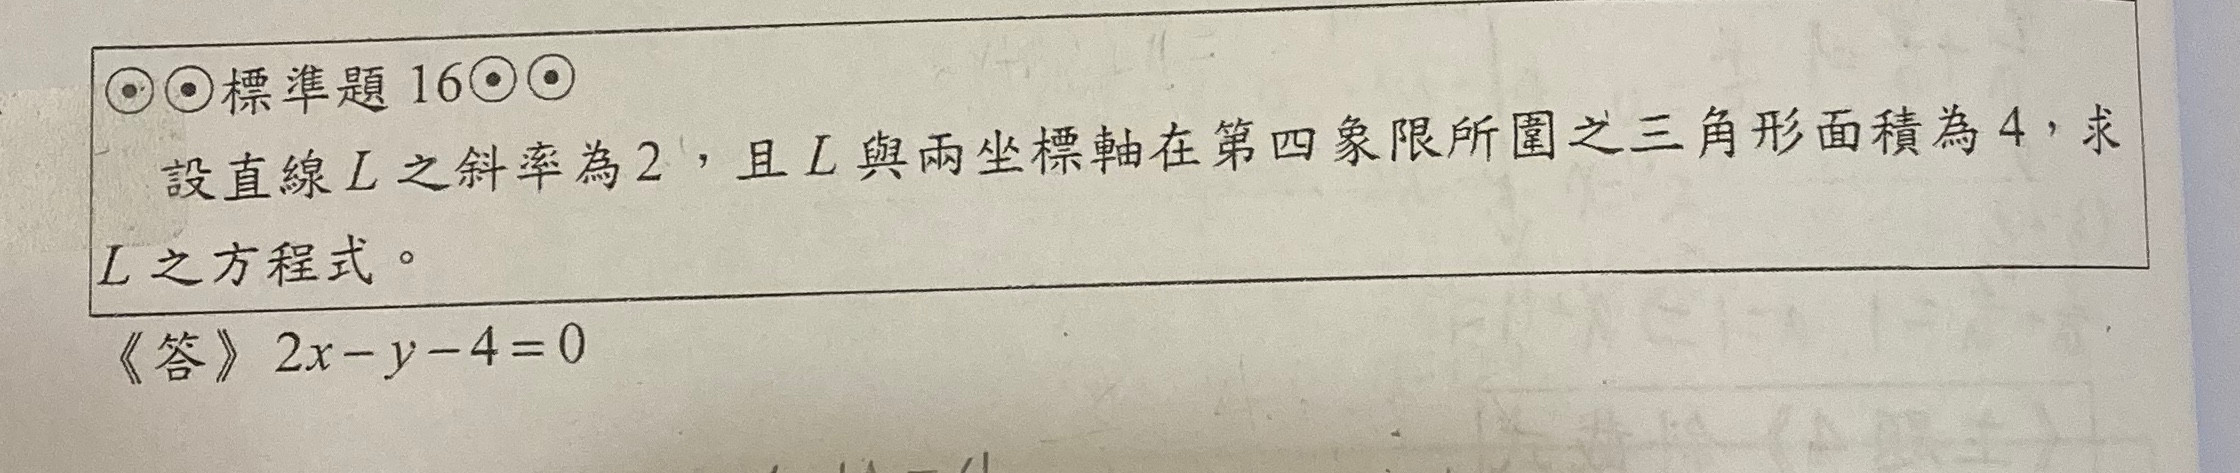 ⊙⊙標準題 16⊙⊙
設直線 L 之斜率為 2,且 L 與兩坐標軸在第四象限所圍之三角形面積為 4,求
L 之方程式。
《答》2x − y − 4 = 0